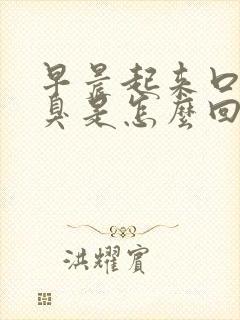 早晨起来口
臭是怎麼回
洪耀賓